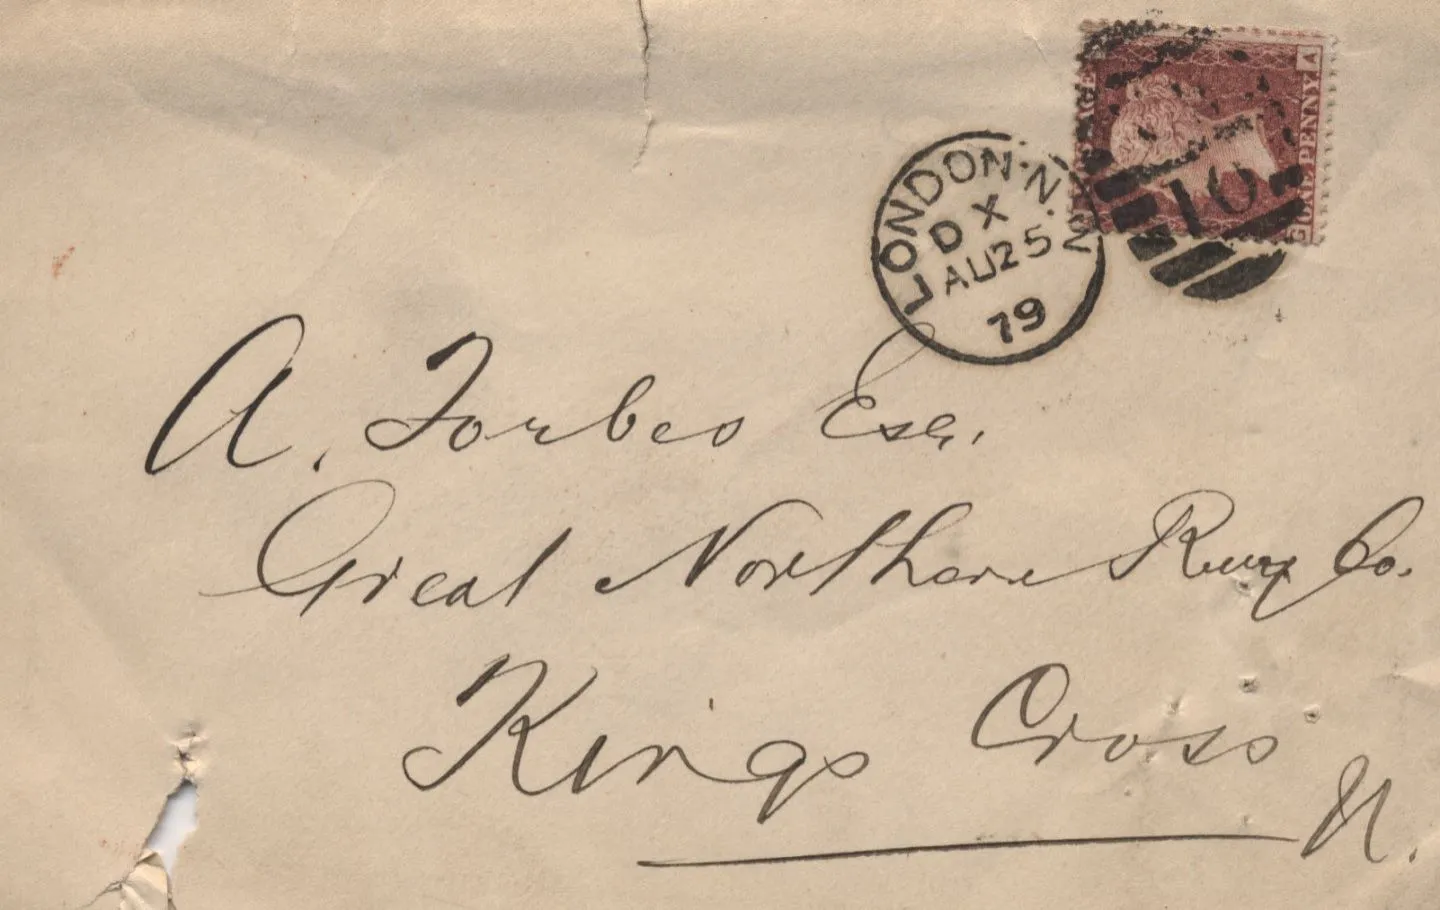 LONDON·N.W
DX
AU25
79
10
ONE PENNY
A
G
A. Forbes Esq.
Great Northern Rwy Co.
Kings Cross
N.